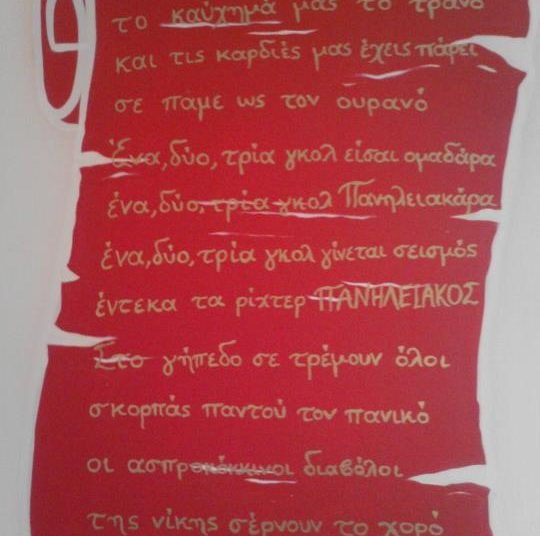 το καύχημά μας το τρανό
και τις καρδιές μας έχεις πάρει
σε παμε ως τον ουρανό
Ένα,δύο,τρία γκολ είσαι ομαδάρα
ένα,δύο,τρία γκολ Πανηλειακάρα
ένα,δύο,τρία γκολ γίνεται σεισμός
έντεκα τα ρίχτερ ΠΑΝΗΛΕΙΑΚΟΣ
Στο γήπεδο σε τρέμουν όλοι
σκορπάς παντού τον πανικό
οι ασπροκόκκινοι διαβόλοι
της νίκης σέρνουν το χορό